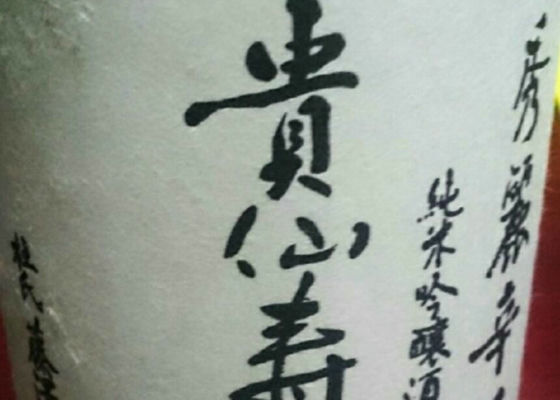 秀麗辛
純米吟醸酒
貴仙寿
杜氏藤